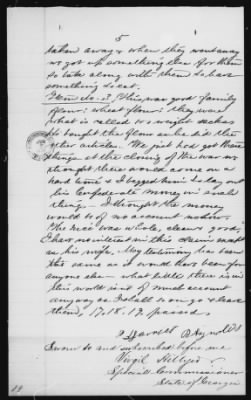 5
taken away & when they went away
we got up something else for them
to take along with them to have
something to eat.
Item No. 3. This was good family
flour: wheat flour: they were
what is called 50 weight sacks
he bought the flour as he did the
other articles. We just had got these
things at the closing of the war we
thought there would come on a
hard time & I begged him to lay out
his Confederate money in such
things. I thought the money
would be of no account no how.
The rice was whole, clean & good,
I have no interest in this claim except
as his wife. My testimony has been
the same as it would have been for
anyone else - what little there is in
this world is it of small account
anyway as I shall soon go & leave
them, 17. 18. 19 passed.
Harriet
Sworn to and subscribed before me
Virgil Hillyer
Special Commissioner
State of Georgia